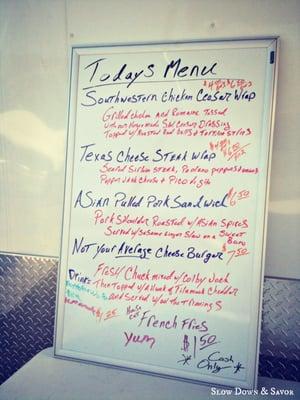 Todays Menu
Southwestern Chicken Ceaser Wrap
Grilled chicken and Romaine Tossed
with our Homemade SW Ceaser Dressing
Topped w/ Roasted Red and Tortilla Strips
Texas Cheese Steak Wrap
Seared Sirloin steak, Poblano peppers & onions
Pepper Jack Cheese + Pico
Asian Pulled Pork Sandwich 6.50
Pork Shoulder Roasted w/ Asian Spices
Served w/ Sesame Ginger Slaw on a Sweet Bun
Not your Average Cheese Burger 7.50
Fresh Chuck mixed w/ Colby Jack
Then Topped w/ A Hunk of Tillamook Cheddar
and Served w/ all the Trimmings
Drinks
1.25
House Cut French Fries
Yum $1.50
* Cash Only *
Slow Down & Savor